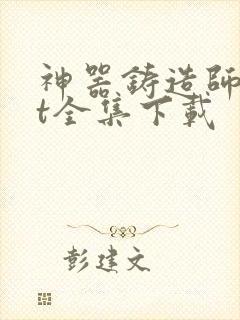 神器铸造師
t全集下載
彭建文